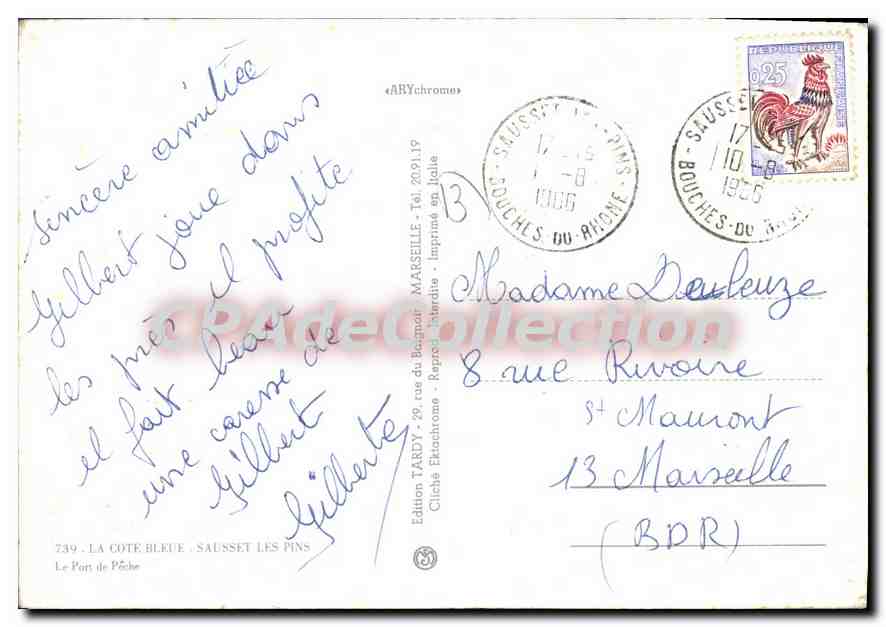 sincère amitiée
Gilbert joue dans
les près il profite
il fait beau
une caresse de
Gilbert
Gilberte
739 - LA COTE BLEUE - SAUSSET LES PINS
Le Port de Pêche
«ARYchrome»
Edition TARDY - 29, rue du Baignoir - MARSEILLE - Tél. 20.91.19
Cliché Ektachrome - Reprod. Interdite - Imprimé en Italie
SAUSSET PINS
17
-8
1966
BOUCHES-DU-RHONE
SAUSSE
17
10 -8
1966
BOUCHES-DU-RHONE
REPUBLIQUE
FRANÇAISE
0,25
B
Madame Deuleuze
8 rue Rivoire
St Mauront
13 Marseille
(BDR)
CPAdeCollection